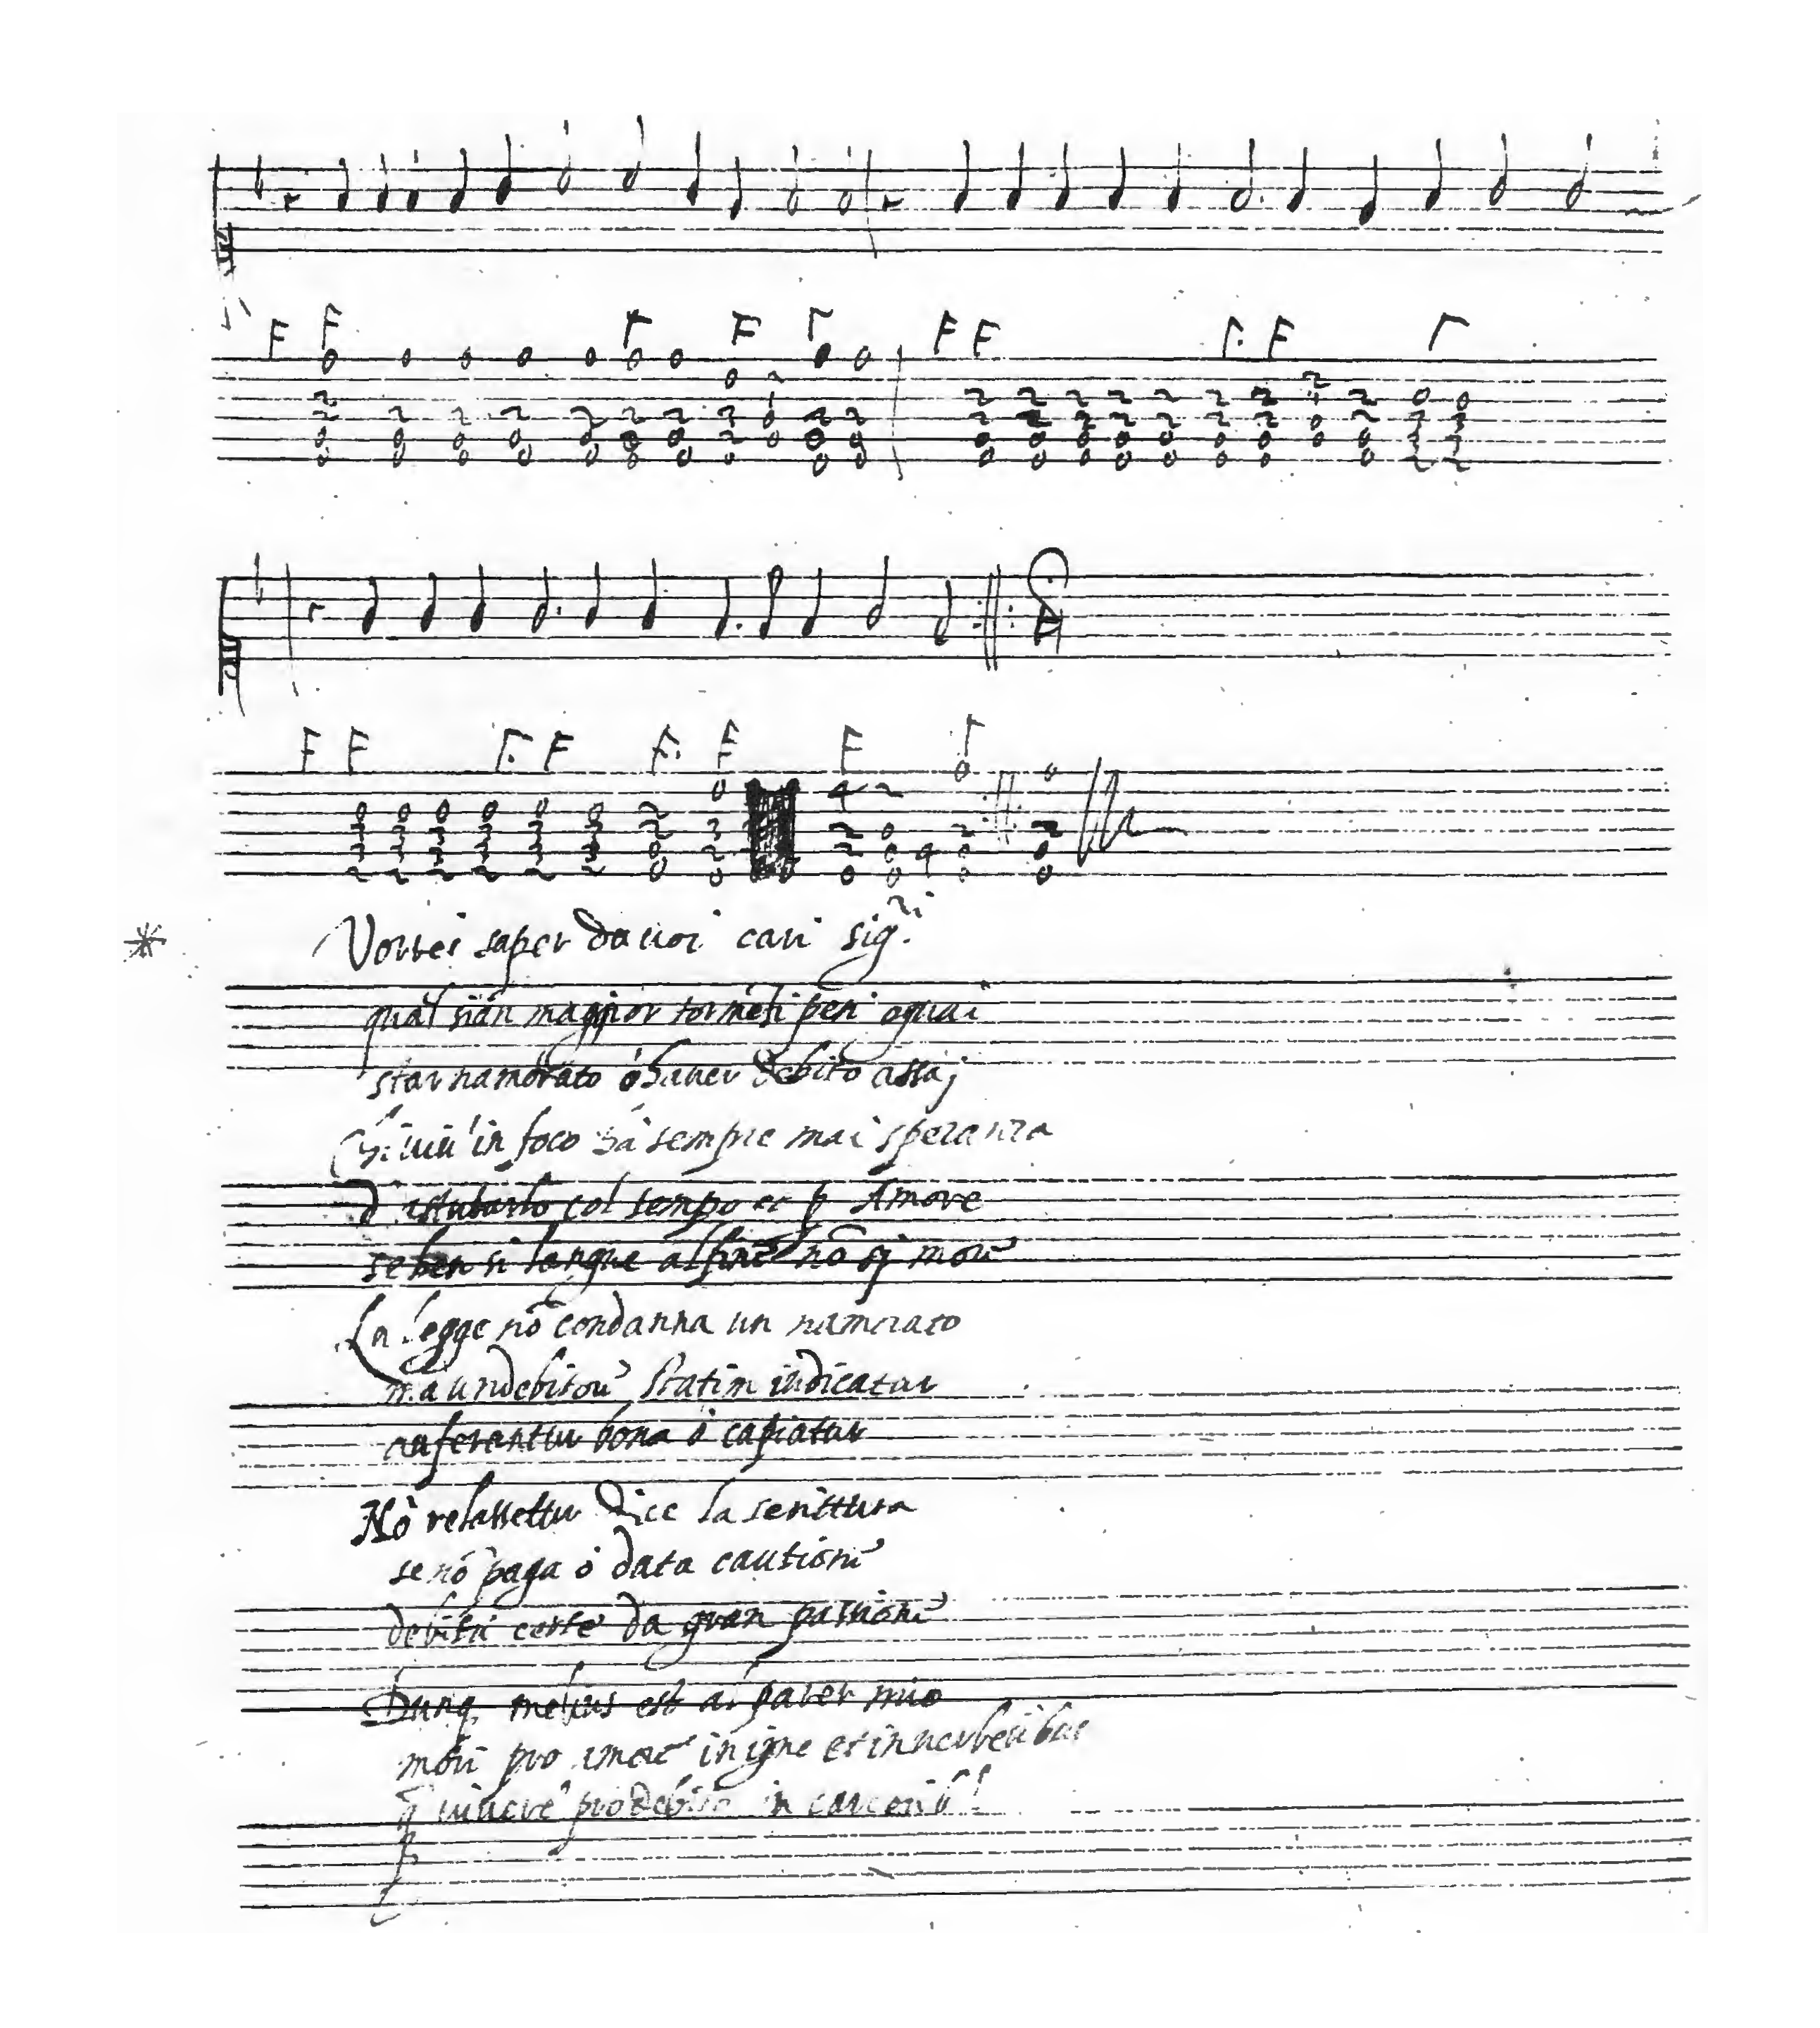 Vorrei saper da uoi cari sig.ri
qual siän maggior torméti peni o guai
star namorato ó hauer debito assaj
Chi uiu' in foco há sempre mai speranza
d'istutarlo col tempo et p Amore
se ben si langue al fine nõ sj more
La legge nõ condanna un namorato
ma un debitore statim indicatur
auferantur bona ò capiatur
Nõ relassettur dice la scrittura
se nõ paga ò data cautione
debita certe da gran passione
Dunq. melius est al parer mio
mori pro amore in igne et in
uiuere pro debito in